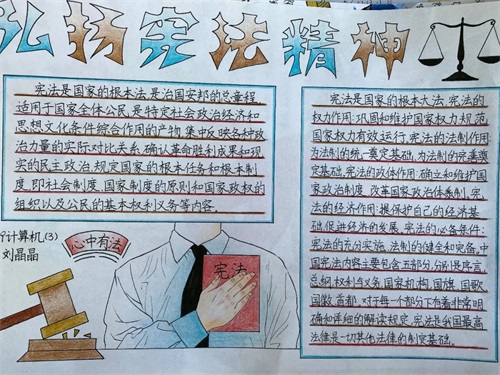 弘扬宪法精神
宪法是国家的根本法,是治国安邦的总章程,
适用于国家全体公民,是特定社会政治经济和
思想文化条件综合作用的产物,集中反映各种政
治力量的实际对比关系,确认革命胜利成果和现
实的民主政治,规定国家的根本任务和根本制
度,即社会制度、国家制度的原则和国家政权的
组织以及公民的基本权利义务等内容。
计算机(3)
刘晶晶
心中有法
宪法
宪法是国家的根本大法,宪法的
权力作用:巩固和维护国家权力,规范
国家权力有效运行,宪法的法制作用
为法制的统一奠定基础,为法制的完善奠
定基础,宪法的政体作用:确立和维护国
家政治制度,改革国家政治体制,宪
法的经济作用:提保护自己的经济基
础促进经济的发展,宪法的必备条件:
宪法的充分实施,法制的健全和完备,中
国宪法内容主要包含五部分,分别是序言,
总纲,权利与义务,国家机构,国旗,国歌,
国徽,首都,对于每个部分下有着非常明
确和详细的解读规定,宪法是我国最高
法律是一切其他法律的制定基础。